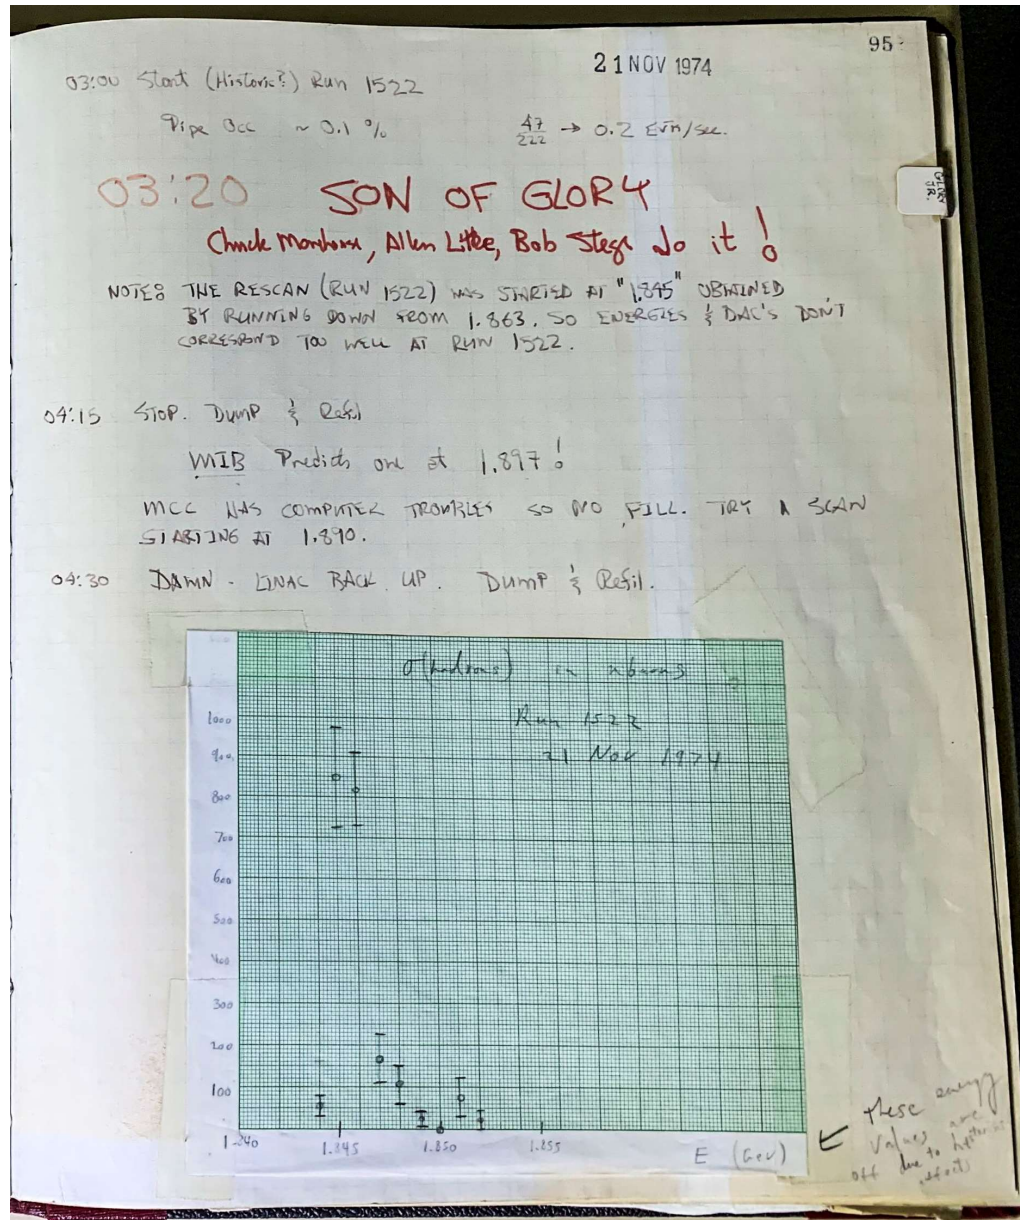 95
21 NOV 1974
03:00 Start (Historic?) Run 1522
Pipe Occ ~ 0.1 % 47/222 → 0.2 Evn/sec.
03:20 SON OF GLORY
GLORY JR.
Allen Litke, Bob Stege do it!
NOTE: THE RESCAN (RUN 1522) WAS STARTED AT "1.845" OBTAINED
BY RUNNING DOWN FROM 1.863. SO ENERGIES & DAC'S DON'T
CORRESPOND TOO WELL AT RUN 1522.
04:15 STOP. Dump & Refil
MIB Predicts one at 1.897!
MCC HAS COMPUTER TROUBLES SO NO FILL. TRY A SCAN
STARTING AT 1.890.
04:30 DAMN - LINAC BACK UP. Dump & Refil.
σ(hadrons) in nbarns
Run 1522
21 Nov 1974
1000
900
800
700
600
500
400
300
200
100
1.840 1.845 1.850 1.855
E (GeV)
← These energy
values are
off due to hysteresis
effects